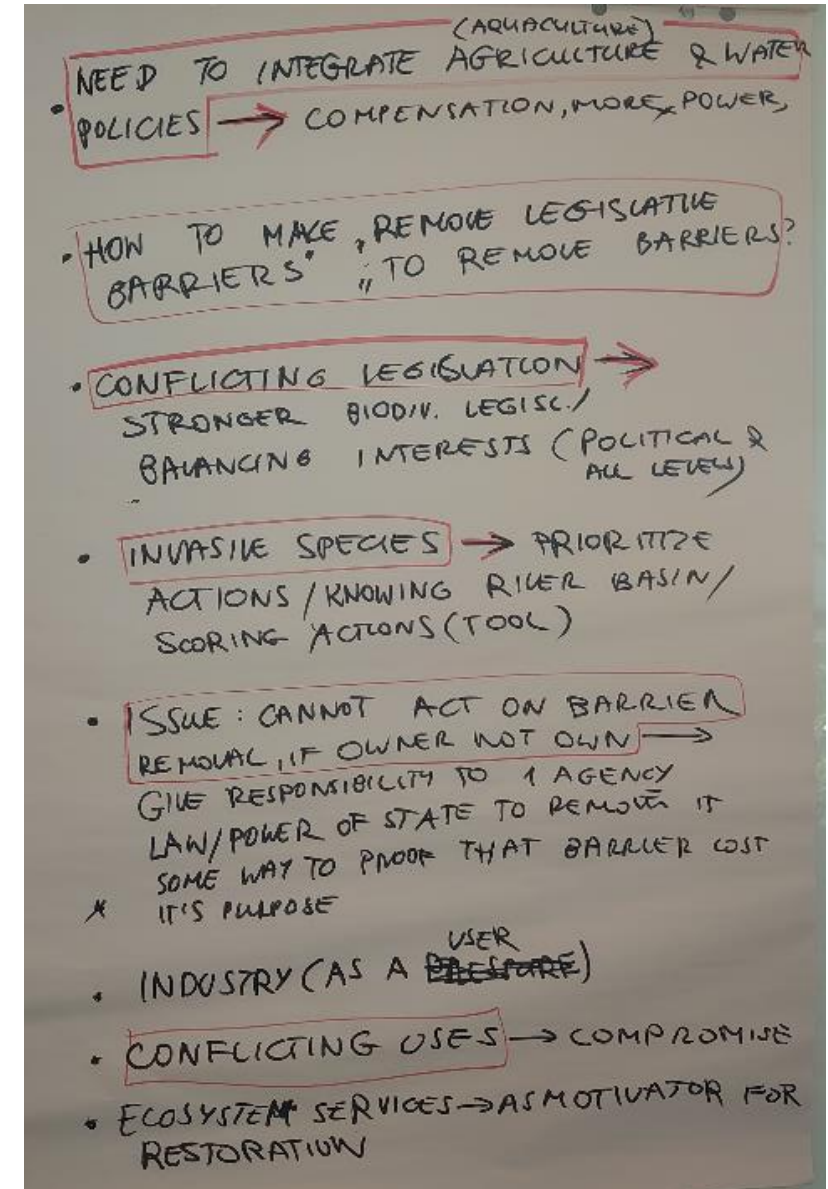 (AQUACULTURE)
• NEED TO INTEGRATE AGRICULTURE & WATER
POLICIES → COMPENSATION, MORE POWER,
• HOW TO MAKE „REMOVE LEGISLATIVE
BARRIERS" „TO REMOVE BARRIERS?
• CONFLICTING LEGISLATION →
STRONGER BIODIV. LEGISL./
BALANCING INTERESTS (POLITICAL &
ALL LEVELS)
• INVASIVE SPECIES → PRIORITIZE
ACTIONS/KNOWING RIVER BASIN/
SCORING ACTIONS (TOOL)
• ISSUE: CANNOT ACT ON BARRIER
REMOVAL, IF OWNER NOT OWN →
GIVE RESPONSIBILITY TO 1 AGENCY
LAW/POWER OF STATE TO REMOVE IT
SOME WAY TO PROOF THAT BARRIER LOST
* IT'S PURPOSE
USER
• INDUSTRY (AS A PRESSURE)
• CONFLICTING USES → COMPROMISE
• ECOSYSTEM SERVICES → AS MOTIVATOR FOR
RESTORATION